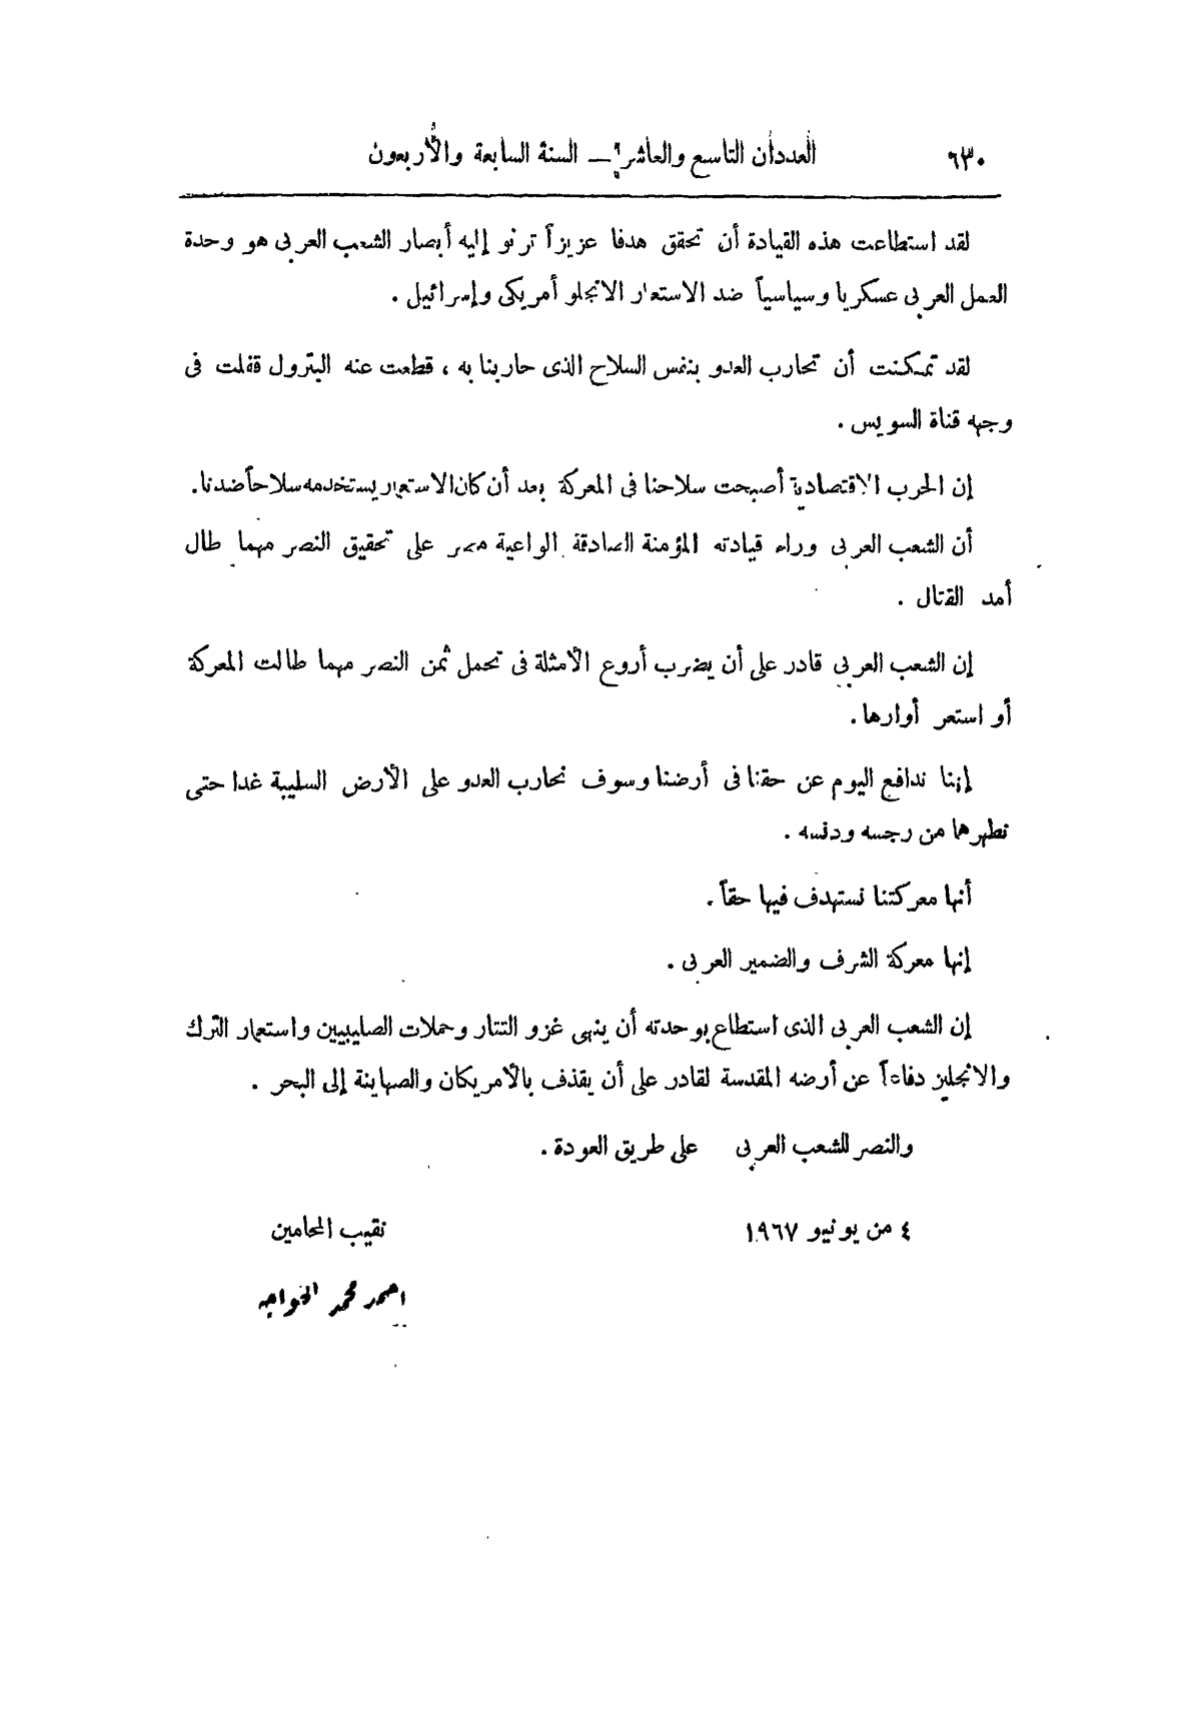 ٦٣٠
العددان التاسع والعاشر — السنة السابعة والأربعون
لقد استطاعت هذه القيادة أن تحقق هدفا عزيزاً ترنو إليه أبصار الشعب العربى هو وحدة
العمل العربى عسكريا وسياسياً ضد الاستعمار الانجلو أمريكى وإسرائيل .
لقد تمكنت أن تحارب العدو بنفس السلاح الذى حاربنا به ، قطعت عنه البترول قفلت فى
وجهه قناة السويس .
إن الحرب الاقتصادية أصبحت سلاحنا فى المعركة بعد أن كان الاستعمار يستخدمه سلاحاً ضدنا .
أن الشعب العربى وراء قيادته المؤمنة الصادقة الواعية مصر على تحقيق النصر مهما طال
أمد القتال .
إن الشعب العربى قادر على أن يضرب أروع الأمثلة فى تحمل ثمن النصر مهما طالت المعركة
أو استعر أوارها .
إننا ندافع اليوم عن حقنا فى أرضنا وسوف نحارب العدو على الأرض السليبة غدا حتى
نطهرها من رجسه ودنسه .
أنها معركتنا نستهدف فيها حقاً .
إنها معركة الشرف والضمير العربى .
إن الشعب العربى الذى استطاع بوحدته أن ينهى غزو التتار وحملات الصليبيين واستعمار الترك
والانجليز دفاعاً عن أرضه المقدسة لقادر على أن يقذف بالأمريكان والصهاينة إلى البحر .
والنصر للشعب العربى على طريق العودة .
٤ من يونيو ١٩٦٧
نقيب المحامين
احمد محمد الخواجه